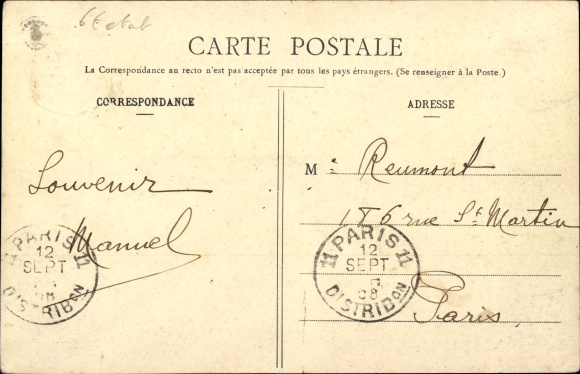 CARTE POSTALE
La Correspondance au recto n'est pas acceptée par tous les pays étrangers. (Se renseigner à la Poste.)
CORRESPONDANCE
Souvenir
Manuel
11 PARIS 11
12
SEPT
08
DISTRIBON
ADRESSE
Me Reumont
186 rue St Martin
Paris
11 PARIS 11
12
SEPT
08
DISTRIBON